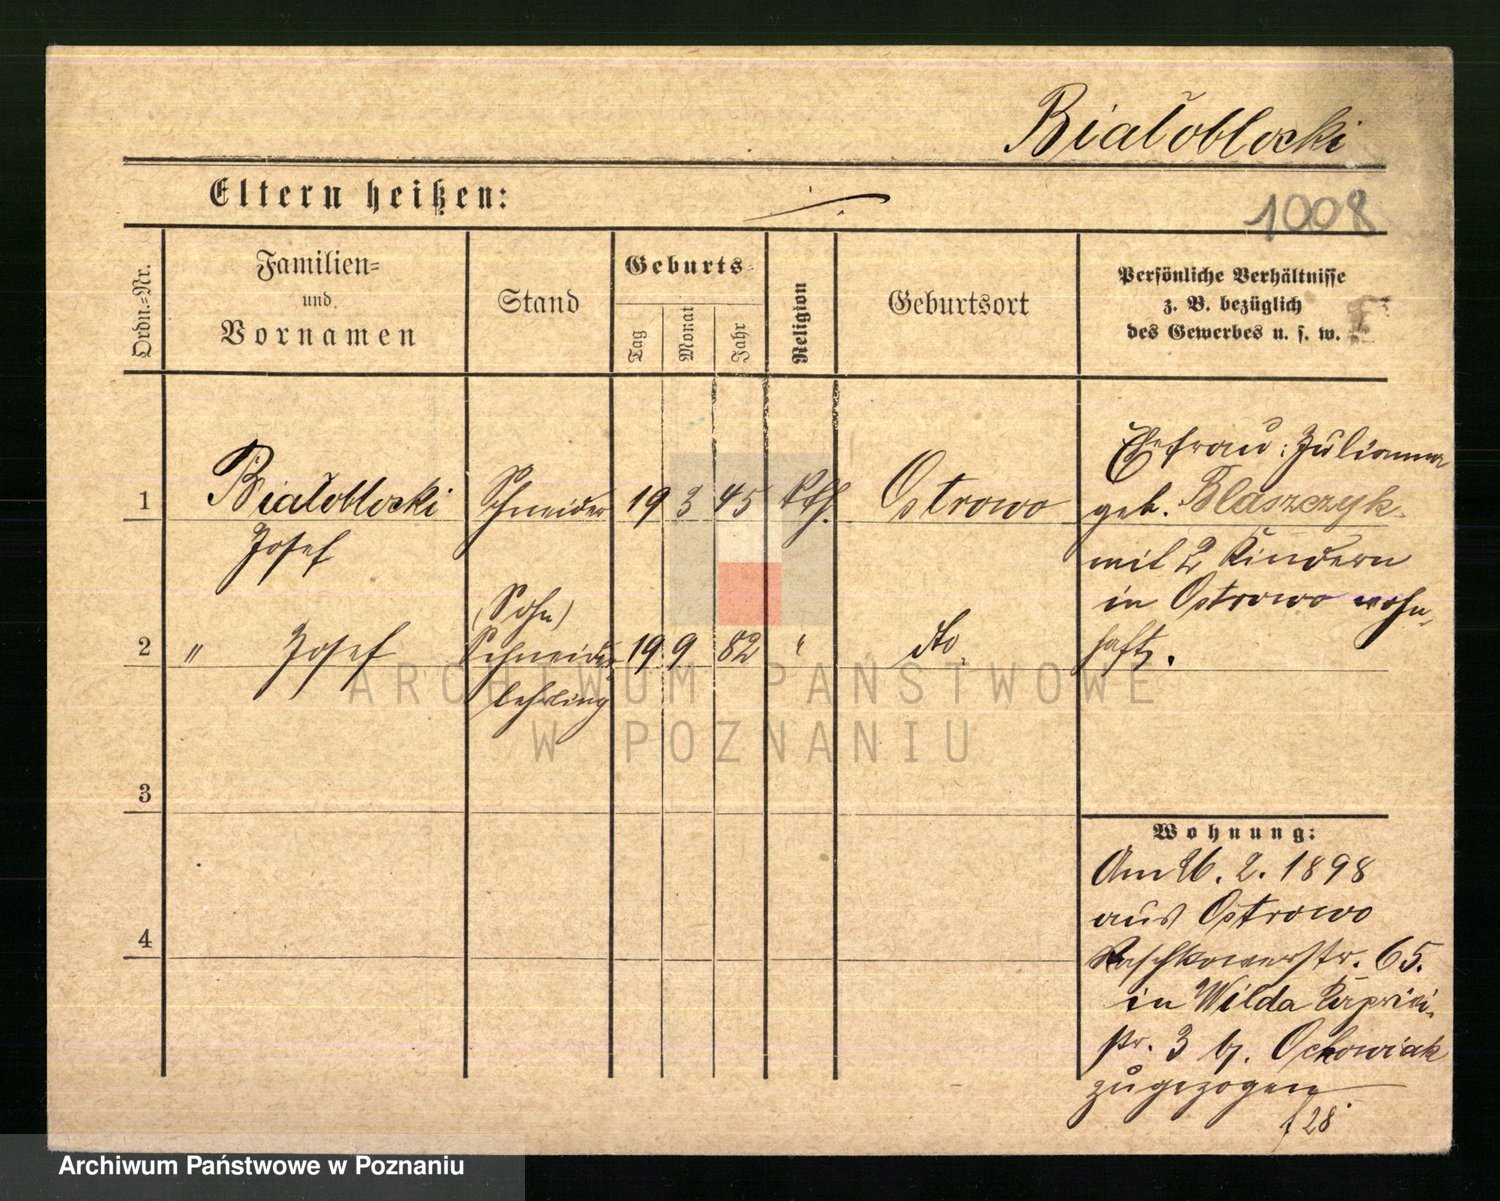 Białoblocki
Eltern heißen:
1008
Ordn.=Nr.
Familien=
und
Vornamen
Stand
Geburts=
Tag
Monat
Jahr
Religion
Geburtsort
Persönliche Verhältnisse
z. B. bezüglich
des Gewerbes u. s. w.
1
Białoblocki
Josef
Schneider
19
3
45
kth.
Ostrowo
Ehefrau: Julianna
geb. Blaszczyk
mit 2 Kindern
in Ostrowo wohn-
haft.
2
"
Josef
(Sohn)
Schneider
lehrling
19
9
82
"
dto
3
4
Wohnung:
Am 26. 2. 1898
aus Ostrowo
Raschkowerstr. 65.
in Wilda
str. 3 b/. Ochowiak
zugezogen
28
ARCHIWUM PAŃSTWOWE
W POZNANIU
Archiwum Państwowe w Poznaniu